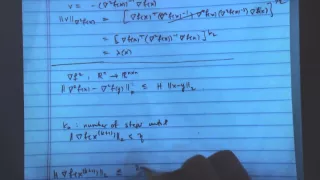 v = -(∇²f(x))⁻¹ ∇f(x)
‖v‖_∇²f(x) = [∇f(x)ᵀ (∇²f(x))⁻¹ ∇²f(x) (∇²f(x))⁻¹ ∇f(x)]^½
= [∇f(x)ᵀ (∇²f(x))⁻¹ ∇f(x)]^½
= λ(x)
∇²f : ℝⁿ → ℝⁿˣⁿ
‖∇²f(x) - ∇²f(y)‖ ≤ H ‖x-y‖₂
number of steps until
‖∇f(x^(k+1))‖₂ ≤ η
‖∇f(x^(k+1))‖₂ ≤